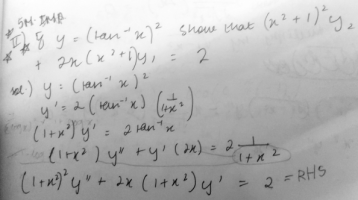 * 5M. IMP
* II) If y = (tan⁻¹ x)² show that (x² + 1)² y₂
* + 2x (x² + 1) y₁ = 2
sol) y = (tan⁻¹ x)²
y' = 2 (tan⁻¹ x) (1/1+x²)
(1+x²) y' = 2 tan⁻¹ x
(1+x²) y'' + y' (2x) = 2 1/1+x²
(1+x²)² y'' + 2x (1+x²) y' = 2 = RHS